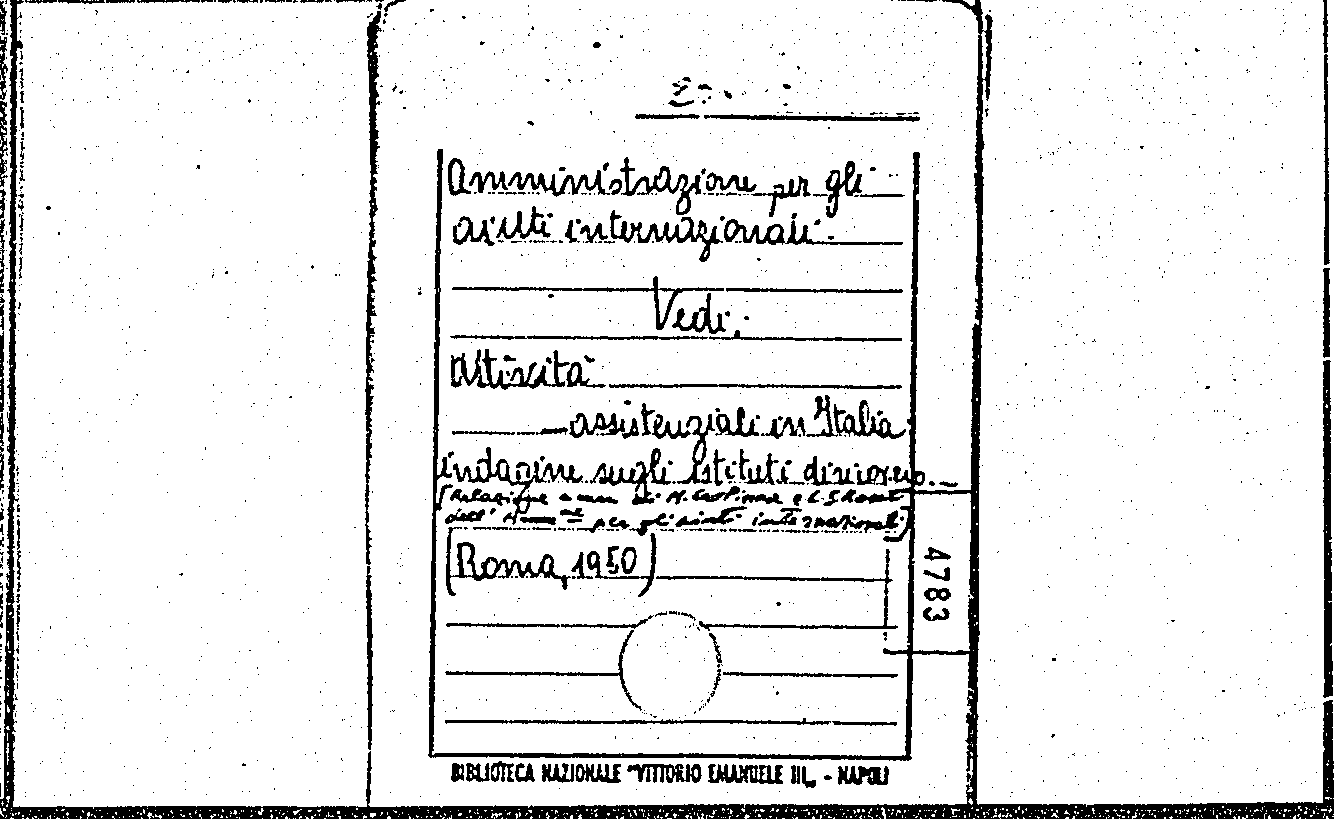 Amministrazione per gli
aiuti internazionali.
Vedi:
Attività
— assistenziali in Italia
indagine sugli istituti di ricovero.—
(Relazione a cura di M. e L.
dell' Amm.ne per gli aiuti internazionali)
(Roma, 1950)
4783
BIBLIOTECA NAZIONALE "VITTORIO EMANUELE III„ - NAPOLI